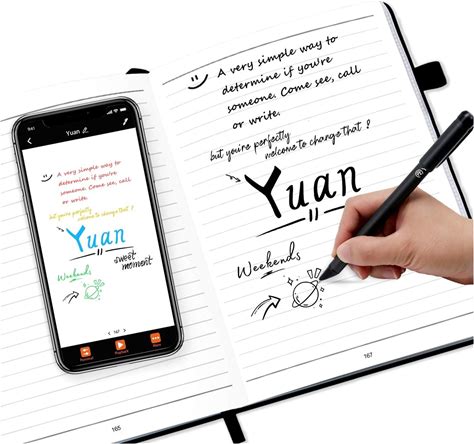 A very simple way to
determine if you're
someone. Come see, call
or write.
but you're perfectly
welcome to change that ?
Yuan
Weekends
167
165
9:41
Yuan
A very simple way to
determine if you're
someone. Come see, call
or write.
but you're perfectly
welcome to change that ?
Yuan
sweet
moment
Weekends
167
Playback